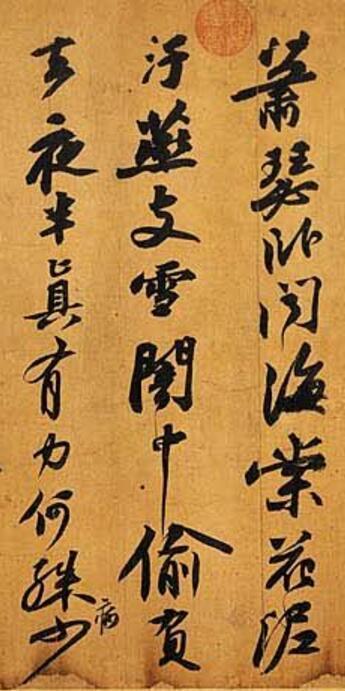 蕭瑟卧聞海棠花泥
汙燕支雪闇中偷負
去夜半真有力何殊病少